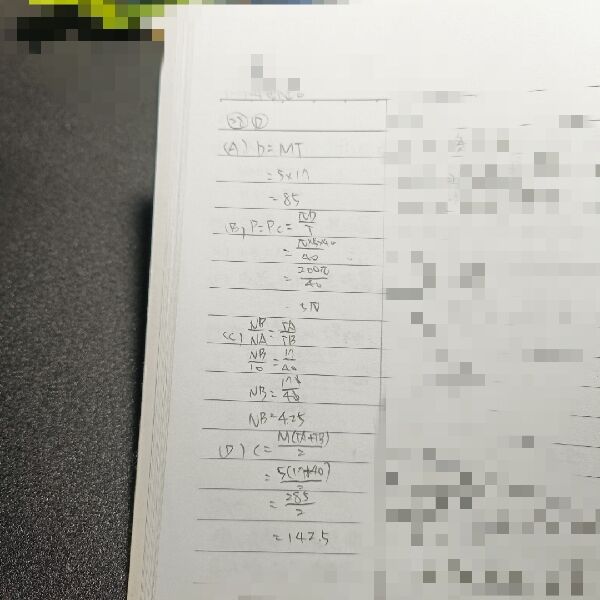 (A) D = MT
= 5×17
= 85
(B) P = Pc = πD/T
= π×5×40/40
= 200π/40
= 5π
(C) NB/NA = TA/TB
NB/10 = 17/40
NB = 170/40
NB = 4.25
(D) C = M(TA+TB)/2
= 5(17+40)/2
= 285/2
= 142.5